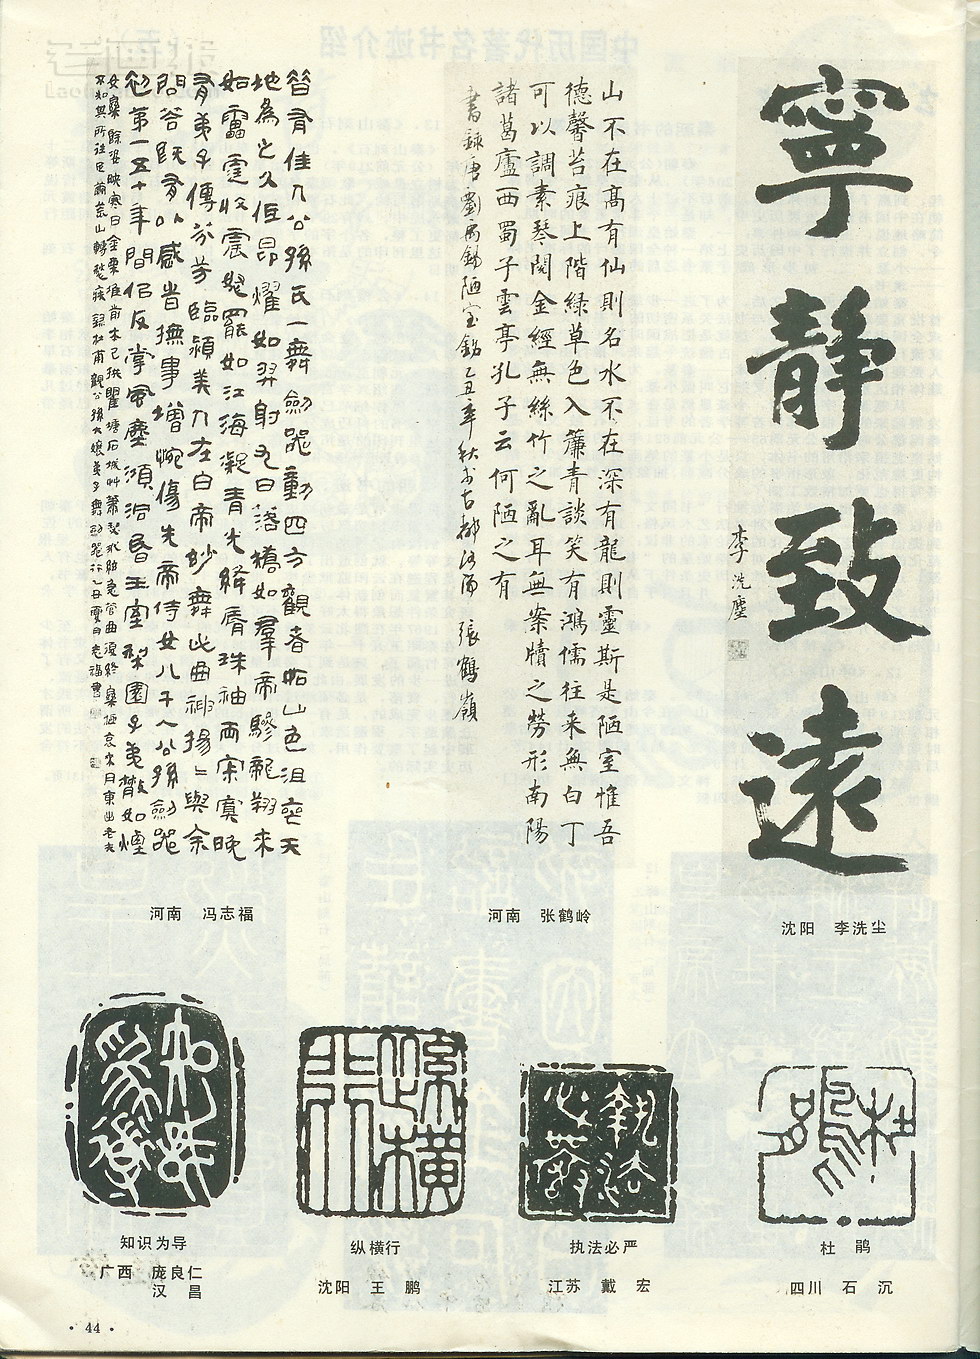 寧靜致遠
李洗塵
山不在高有仙則名水不在深有龍則靈斯是陋室惟吾
德馨苔痕上階綠草色入簾青談笑有鴻儒往来無白丁
可以調素琴閱金經無絲竹之亂耳無案牘之勞形南陽
諸葛廬西蜀子雲亭孔子云何陋之有
書錄唐劉禹錫陋室銘乙丑年秋於古都洛陽 張鶴嶺
昔有佳人公孫氏一舞劍器動四方觀者如山色沮喪天
地為之久低昂㸌如羿射九日落矯如羣帝驂龍翔來
如雷霆收震怒罷如江海凝青光絳脣珠袖兩寂寞晚
有弟子傳芬芳臨潁美人在白帝妙舞此曲神揚〻與余
問答既有以感時撫事增惋傷先帝侍女八千人公孫劍器
初第一五十年間侣反掌風塵澒洞昏王室梨園弟子散如煙
女樂餘姿映寒日金粟堆前木已拱瞿塘石城艸蕭瑟玳筵急管曲復終樂極哀來月東出老夫
不知其所往足繭荒山轉愁疾 錄杜甫觀公孫大娘弟子舞劍器行乙丑夏月志福書
沈阳 李洗尘
河南 张鹤岭
河南 冯志福
知识为导
广西 庞良仁
汉 昌
纵横行
沈阳 王 鹏
执法必严
江苏 戴 宏
杜 鹃
四川 石 沉
· 44 ·